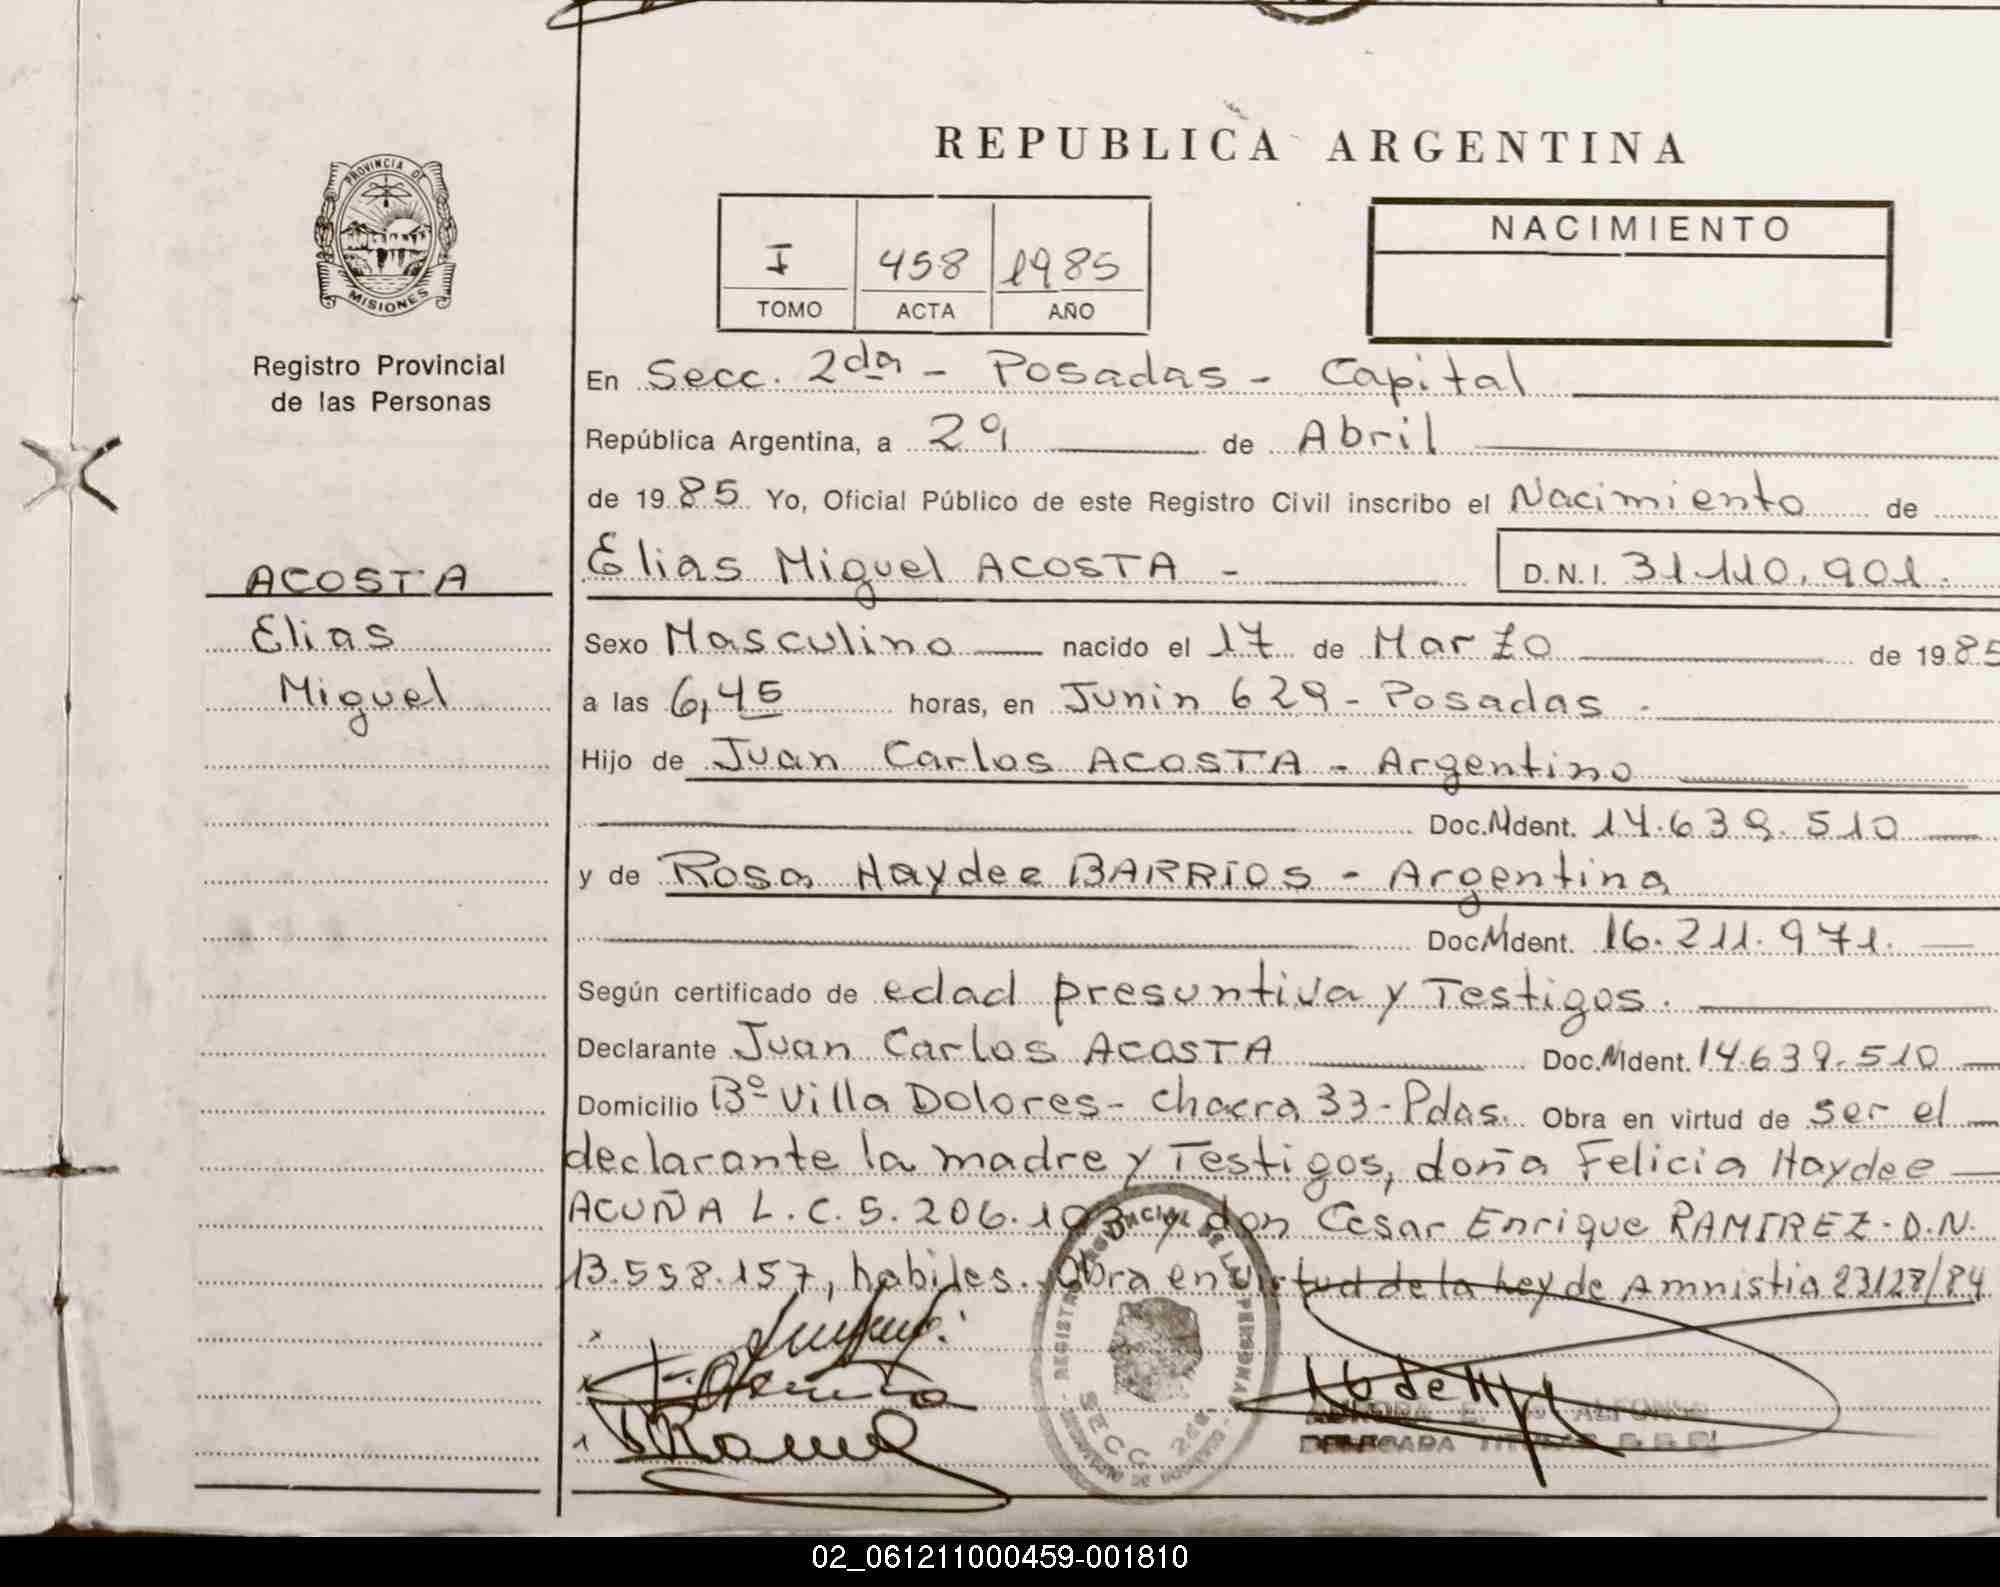 REPUBLICA ARGENTINA
PROVINCIA DE
MISIONES
Registro Provincial
de las Personas
I 458 1985
TOMO ACTA AÑO
NACIMIENTO
En Secc. 2da - Posadas - Capital
República Argentina, a 29 de Abril
de 1985 Yo, Oficial Público de este Registro Civil inscribo el Nacimiento de
ACOSTA
Elias
Miguel
Elias Miguel ACOSTA - D.N.I. 31.110.901.
Sexo Masculino nacido el 17 de Marzo de 1985
a las 6,45 horas, en Junin 629 - Posadas.
Hijo de Juan Carlos ACOSTA - Argentino
Doc. Ident. 14.639.510
y de Rosa Haydee BARRIOS - Argentina
Doc. Ident. 16.211.971.
Según certificado de edad presuntiva y Testigos.
Declarante Juan Carlos ACOSTA Doc. Ident. 14.639.510
Domicilio Bº Villa Dolores - Chacra 33 - Pdas. Obra en virtud de ser el
declarante la madre y Testigos, doña Felicia Haydee
ACUÑA L.C. 5.206.103 y don Cesar Enrique RAMIREZ - D.N.
13.558.157, habiles. Obra en virtud de la ley de Amnistia 23128/84
REGISTRO PROVINCIAL DE LAS PERSONAS
SECC. 2da
DELEGADA TITULAR
02_061211000459-001810